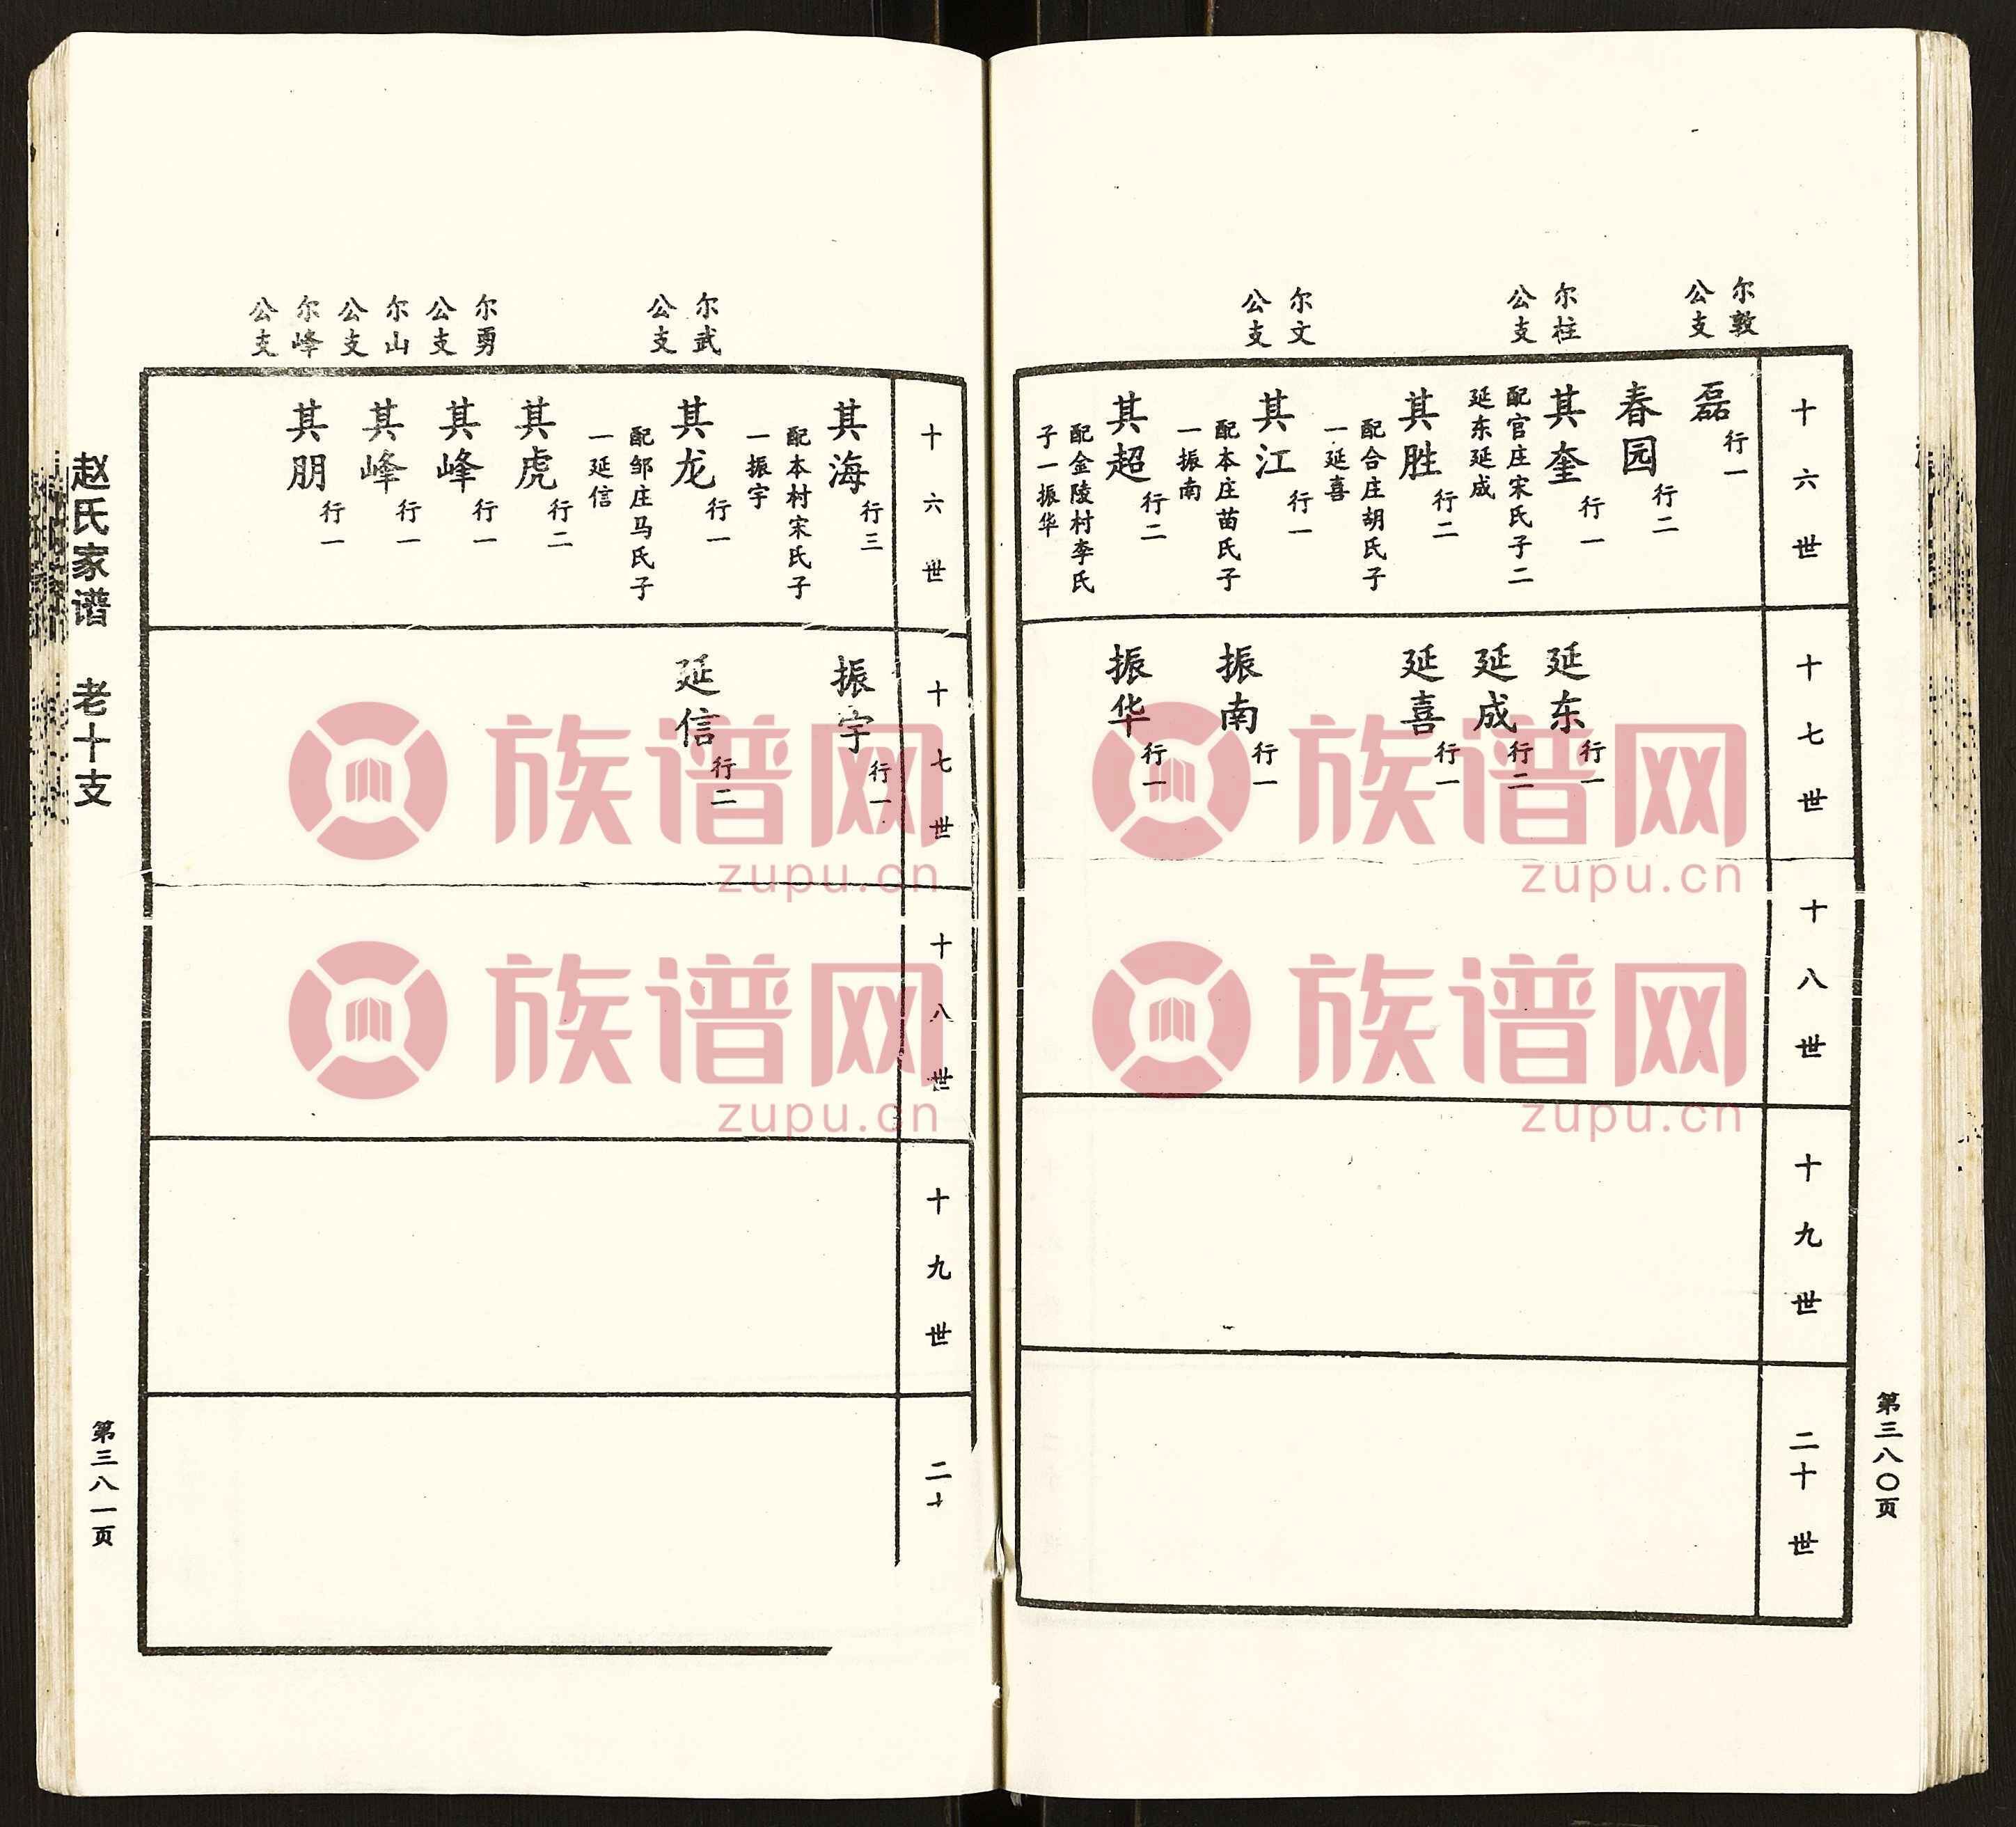 第三八〇页
尔敦
公支
尔柱
公支
尔文
公支
十六世
磊 行一
春园 行二
其奎 行一
配官庄宋氏子二
延东延成
其胜 行二
配合庄胡氏子
一延喜
其江 行一
配本庄苗氏子
一振南
其超 行二
配金陵村李氏
子一振华
十七世
延东 行一
延成 行二
延喜 行一
振南 行一
振华 行一
十八世
十九世
二十世
尔武
公支
尔勇
公支
尔山
公支
尔峰
公支
十六世
其海 行三
配本村宋氏子
一振宇
其龙 行一
配邹庄马氏子
一延信
其虎 行二
其峰 行一
其峰 行一
其朋 行一
十七世
振宇 行一
延信 行二
十八世
十九世
二十
赵氏家谱 老十支
第三八一页
族谱网
zupu.cn
族谱网
zupu.cn
族谱网
zupu.cn
族谱网
zupu.cn